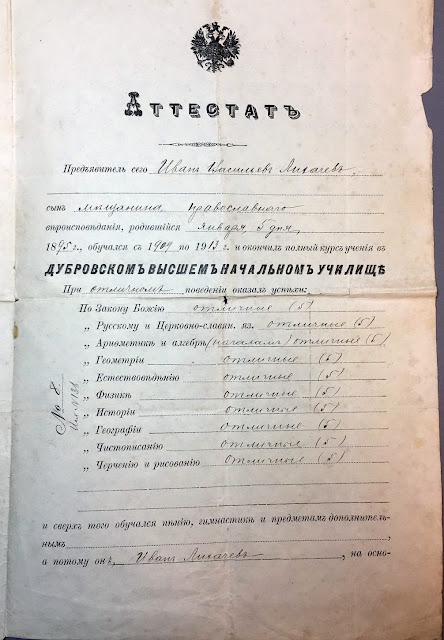 Аттестатъ
Предъявитель сего Иванъ Васильевъ Лихачевъ,
сынъ мѣщанина Православнаго
вѣроисповѣданія, родившійся января 5 дня,
1895 г., обучался съ 1909 по 1913 г. и окончилъ полный курсъ ученія въ
ДУБРОВСКОМЪ ВЫСШЕМЪ НАЧАЛЬНОМЪ УЧИЛИЩѢ
При отличномъ поведеніи оказалъ успѣхи:
По Закону Божію отличные (5)
„ Русскому и Церковно-славян. яз. отличные (5)
„ Ариѳметикѣ и алгебрѣ (началамъ) отличные (5)
„ Геометріи отличные (5)
„ Естествовѣдѣнію отличные (5)
„ Физикѣ отличные (5)
„ Исторіи отличные (5)
„ Географіи отличные (5)
„ Чистописанію отличные (5)
„ Черченію и рисованію отличные (5)
№ 8
и сверхъ того обучался пѣнію, гимнастикѣ и предметамъ дополнитель-
нымъ
а потому онъ, Иванъ Лихачевъ, на осно-